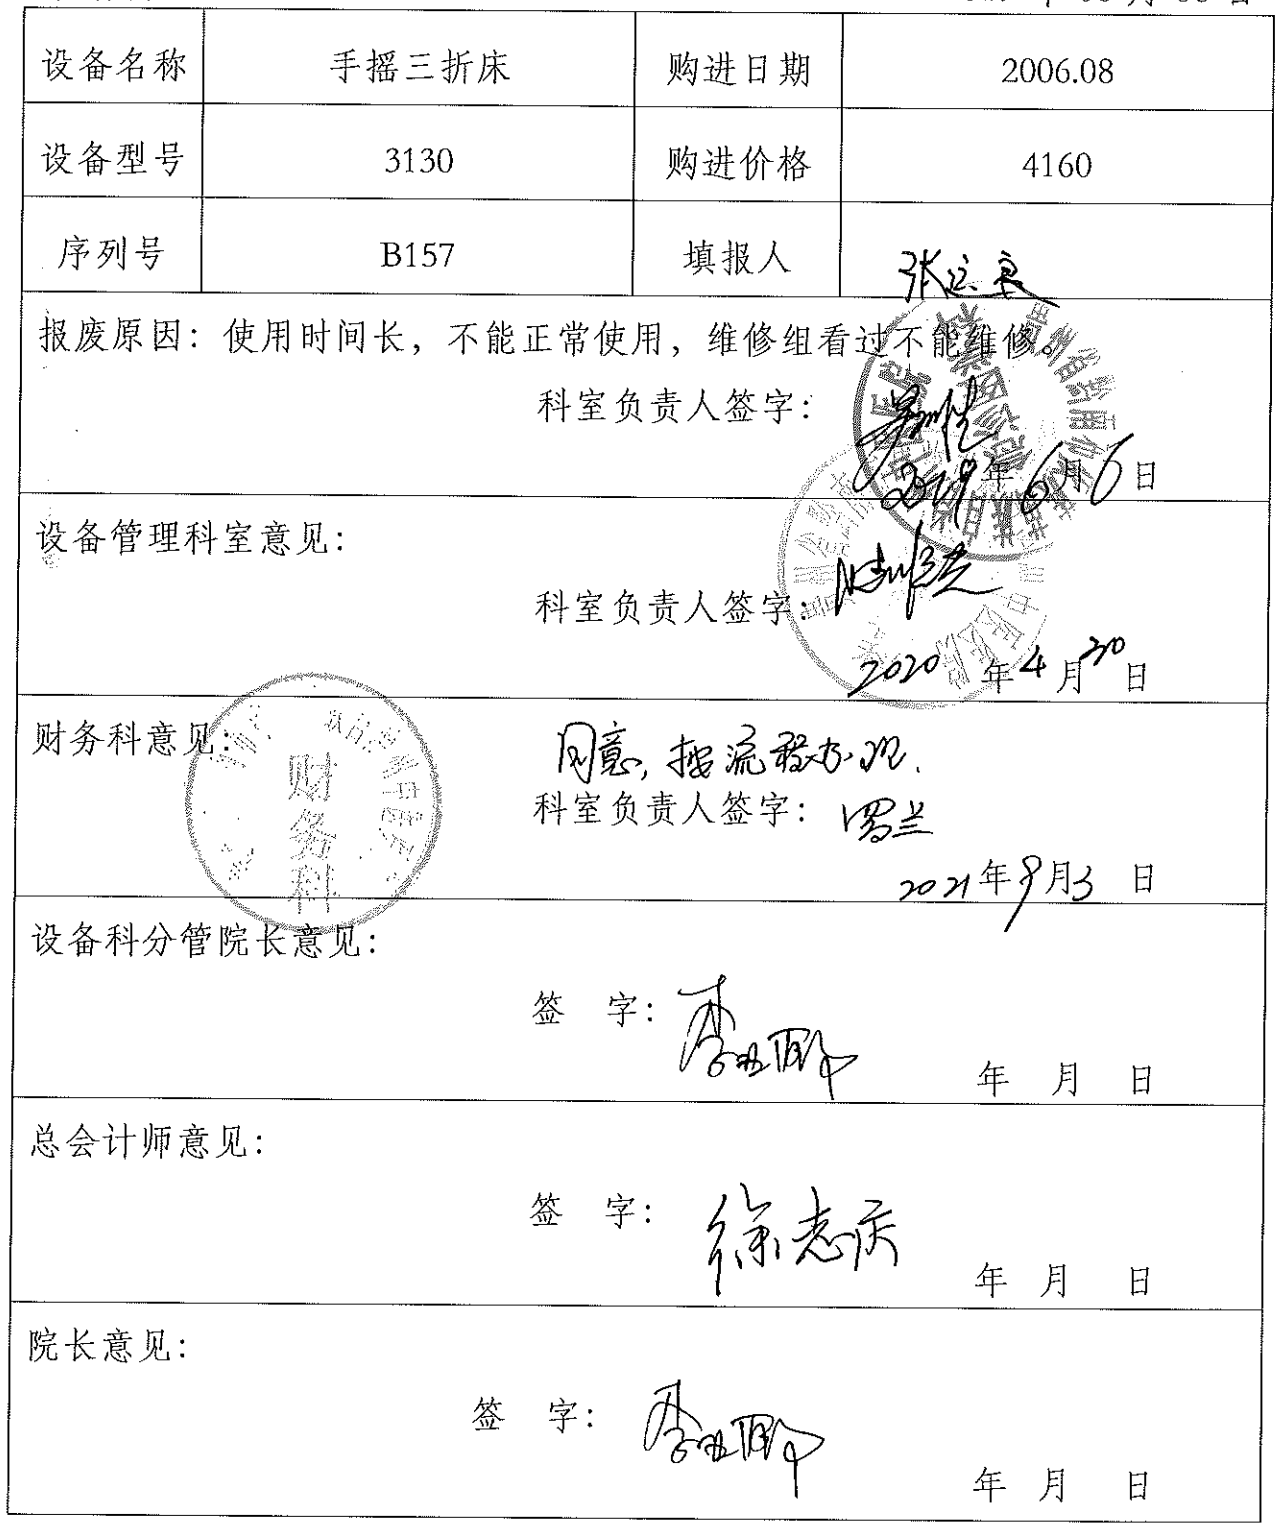 设备名称 手摇三折床 购进日期 2006.08
设备型号 3130 购进价格 4160
序列号 B157 填报人
报废原因：使用时间长，不能正常使用，维修组看过不能维修。
科室负责人签字：
2019年6月6日
设备管理科室意见：
科室负责人签字：
2020年4月30日
财务科意见：
财务科
同意，按流程办理.
科室负责人签字：罗兰
2021年9月3日
设备科分管院长意见：
签 字：
年 月 日
总会计师意见：
签 字：徐志庆
年 月 日
院长意见：
签 字：
年 月 日